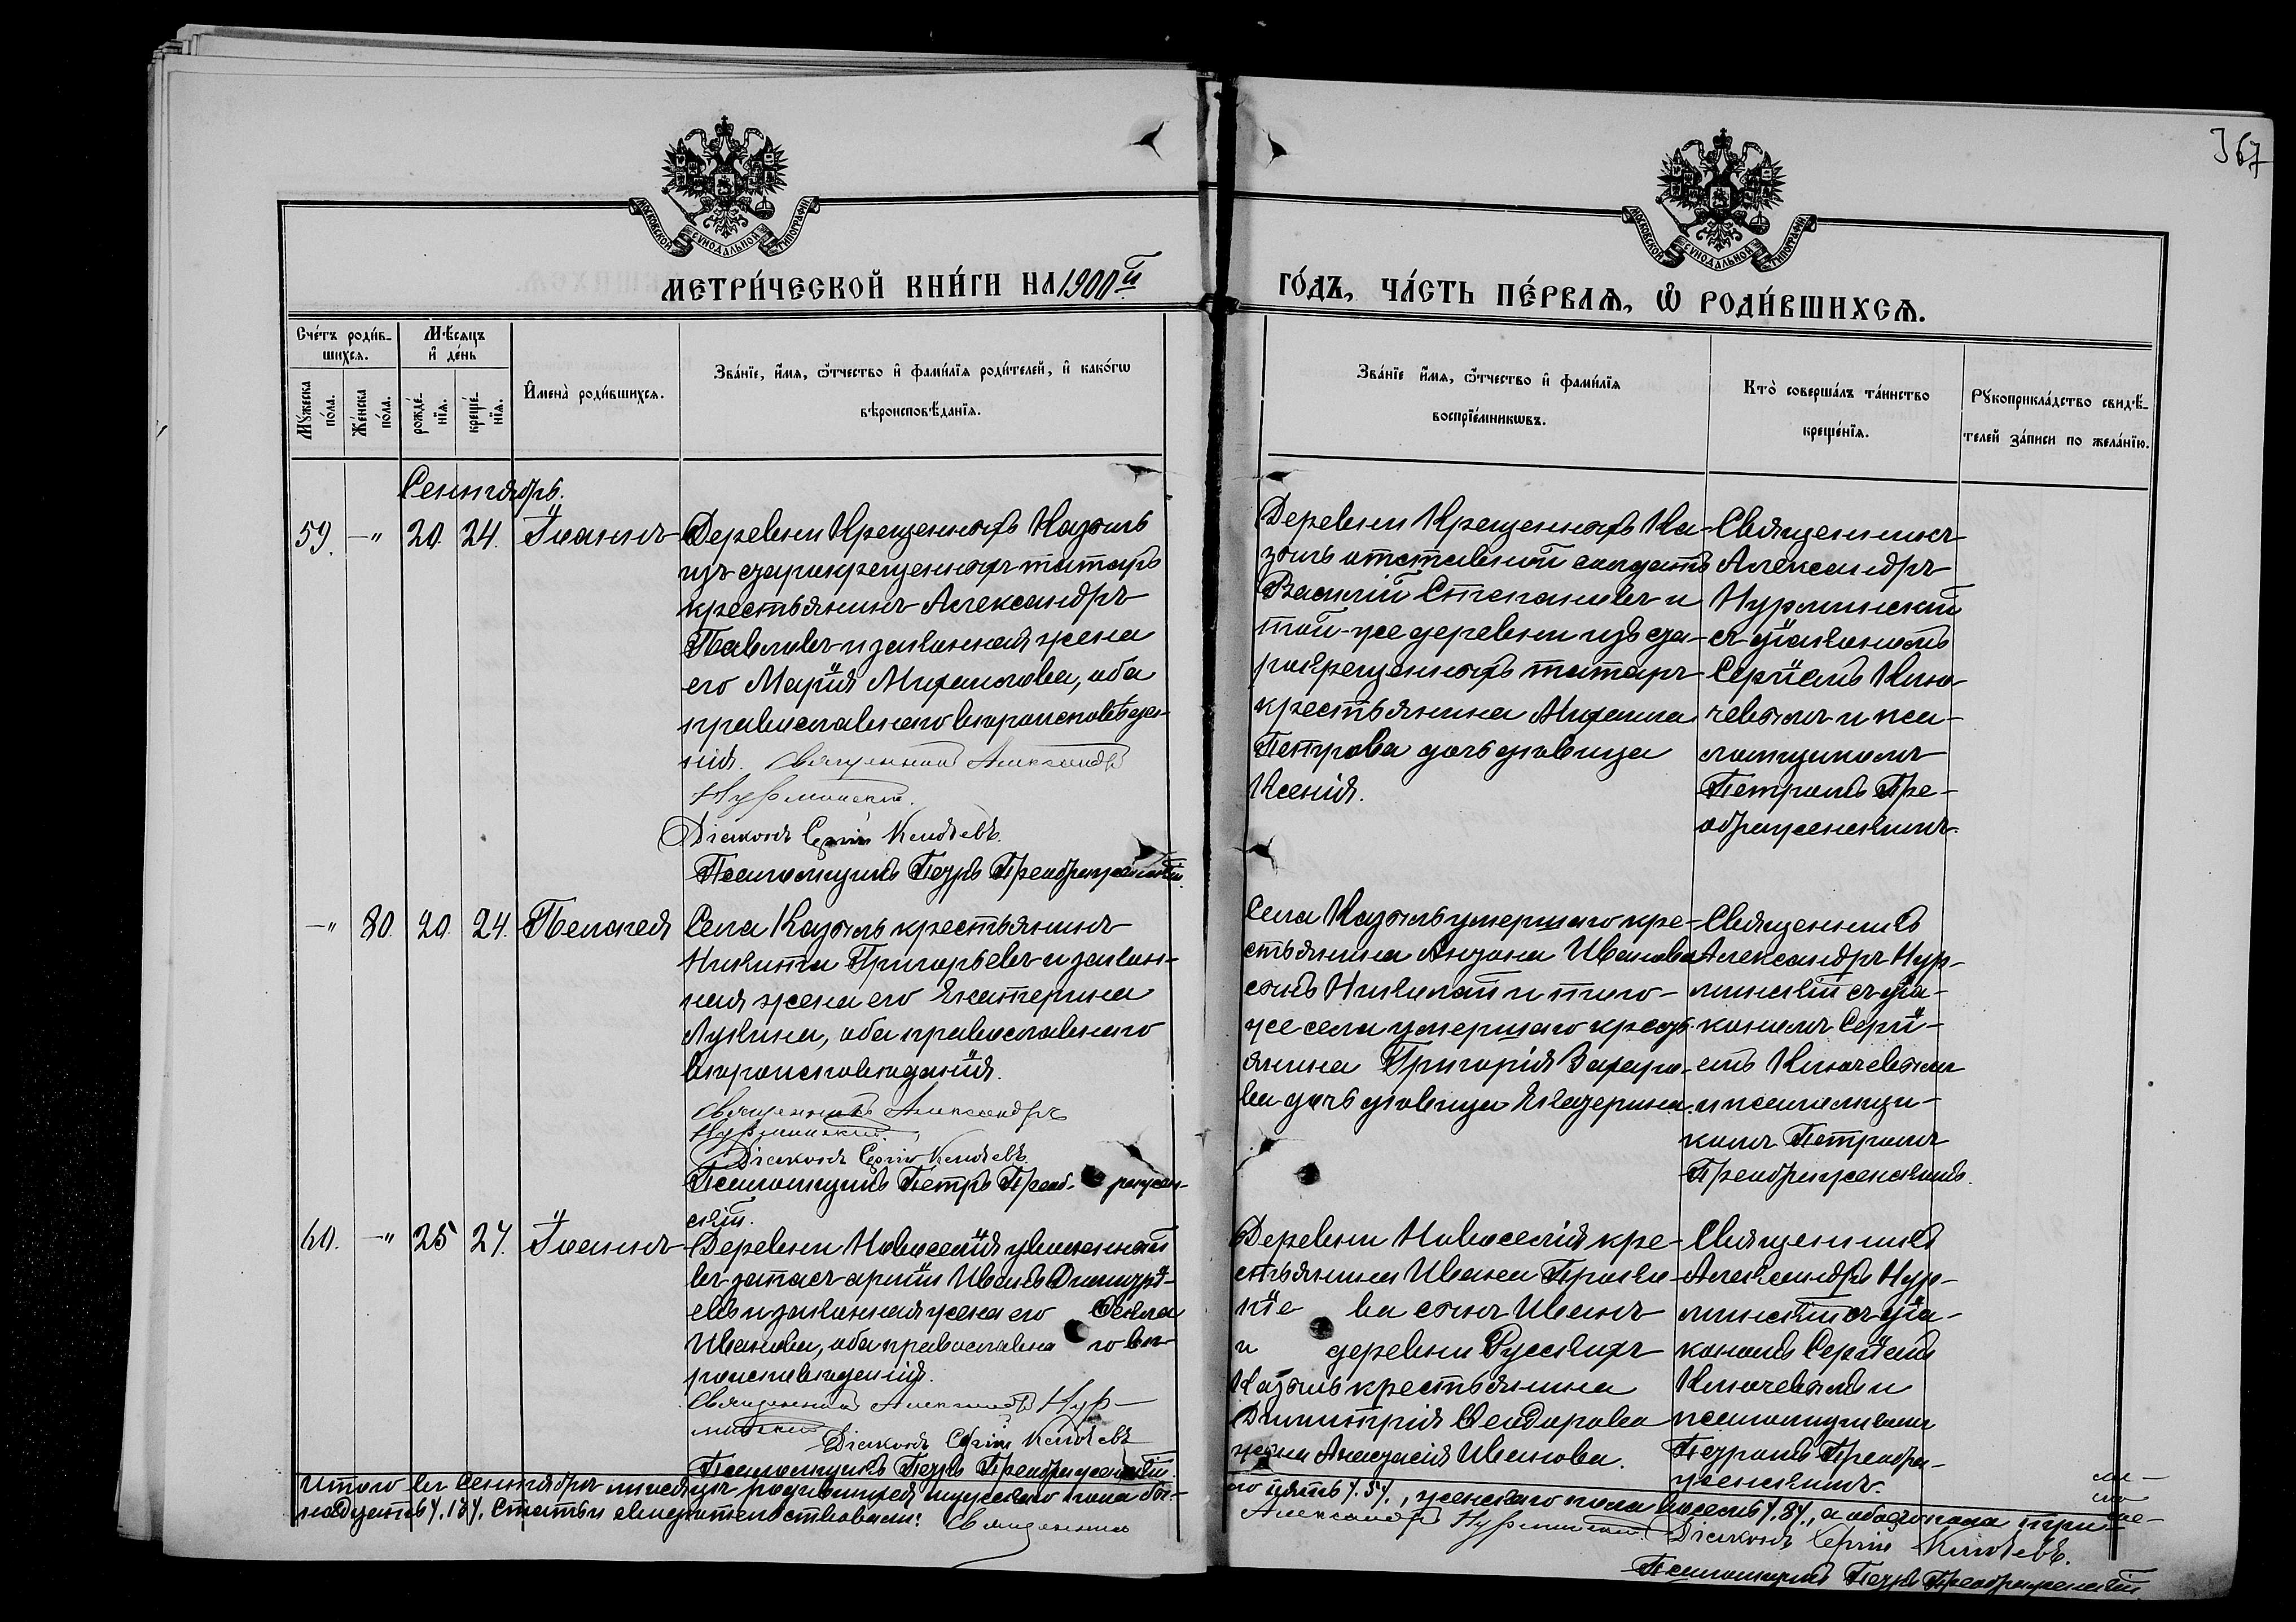 367
МОСКОВСКОЙ СѴНОДАЛЬНОЙ ТИПОГРАФІИ
МОСКОВСКОЙ СѴНОДАЛЬНОЙ ТИПОГРАФІИ
МЕТРИ́ЧЕСКОЙ КНИ́ГИ НА 1900й
ГО́ДЪ, ЧА́СТЬ ПЕ́РВАѦ, Ѽ РОДИ́ВШИХСѦ.
Сче́тъ роди́в-
шихся.
Мѣ́сяцъ
и҆ де́нь
Мꙋ́жеска
по́ла.
Же́нска
по́ла.
рожде́-
нїя.
креще́-
нїя.
И҆мена̀ роди́вшихся.
Зва́нїе, и҆́мя, ѻ҆́тчество и҆ фами́лїя роди́телей, и҆ како́гѡ
вѣроисповѣ́данїя.
Зва́нїе и҆́мя, ѻ҆́тчество и҆ фами́лїя
воспрїе́мникѡвъ.
Кто̀ соверша́лъ та́инство
креще́нїя.
Рꙋкоприкла́дство свидѣ́-
телей за́писи по жела́нїю.
Сентябрь.
59. –" 20. 24. Іоаннъ
Деревни Крещенныхъ Казыль
изъ старокрещенныхъ татаръ
крестьянинъ Александръ
Павловъ и законная жена
его Марія Михаилова, оба
православнаго вѣроисповѣда-
нія. Священникъ Александръ
Нурминскій.
Діаконъ Сергій Ключевъ.
Псаломщикъ Петръ Преображенскій.
Деревни Крещенныхъ Ка-
зыль отставной солдатъ
Василій Степановъ и
той-же деревни изъ ста-
рокрещенныхъ татаръ
крестьянина Михаила
Петрова дочь дѣвица
Ксенія.
Священникъ
Александръ
Нурминскій
съ діакономъ
Сергіемъ Клю-
чевымъ и пса-
ломщикомъ
Петромъ Пре-
ображенскимъ.
–" 80. 20. 24. Пелагея
Села Казыль крестьянинъ
Никита Григорьевъ и закон-
ная жена его Екатерина
Лукина, оба православнаго
вѣроисповѣданія.
Священникъ Александръ
Нурминскій.
Діаконъ Сергій Ключевъ.
Псаломщикъ Петръ Преоб- ражен-
скій.
Села Казыль умершаго кре-
стьянина Ивanова
сынъ Николай и того-
же села умершаго кресть-
янина Григорія Захаро-
ва дочь дѣвица Екатерина.
Священникъ
Александръ Нур-
минскій съ діа-
кономъ Сергі-
емъ Ключевымъ
и псаломщи-
комъ Петромъ
Преображенскимъ.
60. –" 25 27. Іоаннъ
Деревни Новоселія уволенный
въ запасъ арміи Иванъ Димитрі-
евъ и законная жена его Ѳекла
Иванова, оба православна го вѣ-
роисповѣданія.
Священникъ Александръ Нур-
минскій Діаконъ Сергій Ключевъ
Псаломщикъ Петръ Преображенскій.
Деревни Новоселія кре-
стьянина Ивана Проко-
піе ва сынъ Иванъ
и деревни Русскихъ
Казыль крестьянина
Димитрія Ѳеодорова
жена Анастасія Иванова.
Священникъ
Александръ Нур-
минскій съ діа-
кономъ Сергіемъ
Ключевымъ и
псаломщикомъ
Петромъ Преобра-
женскимъ.
Итого въ Сентябрѣ мѣсяцѣ родившихся мужескаго пола
Священникъ
женскаго пола восемь /.8/., а обоего пола три-
Александръ Нурминскій. Діаконъ Сергій Ключевъ.
Псаломщикъ Петръ Преображенскій